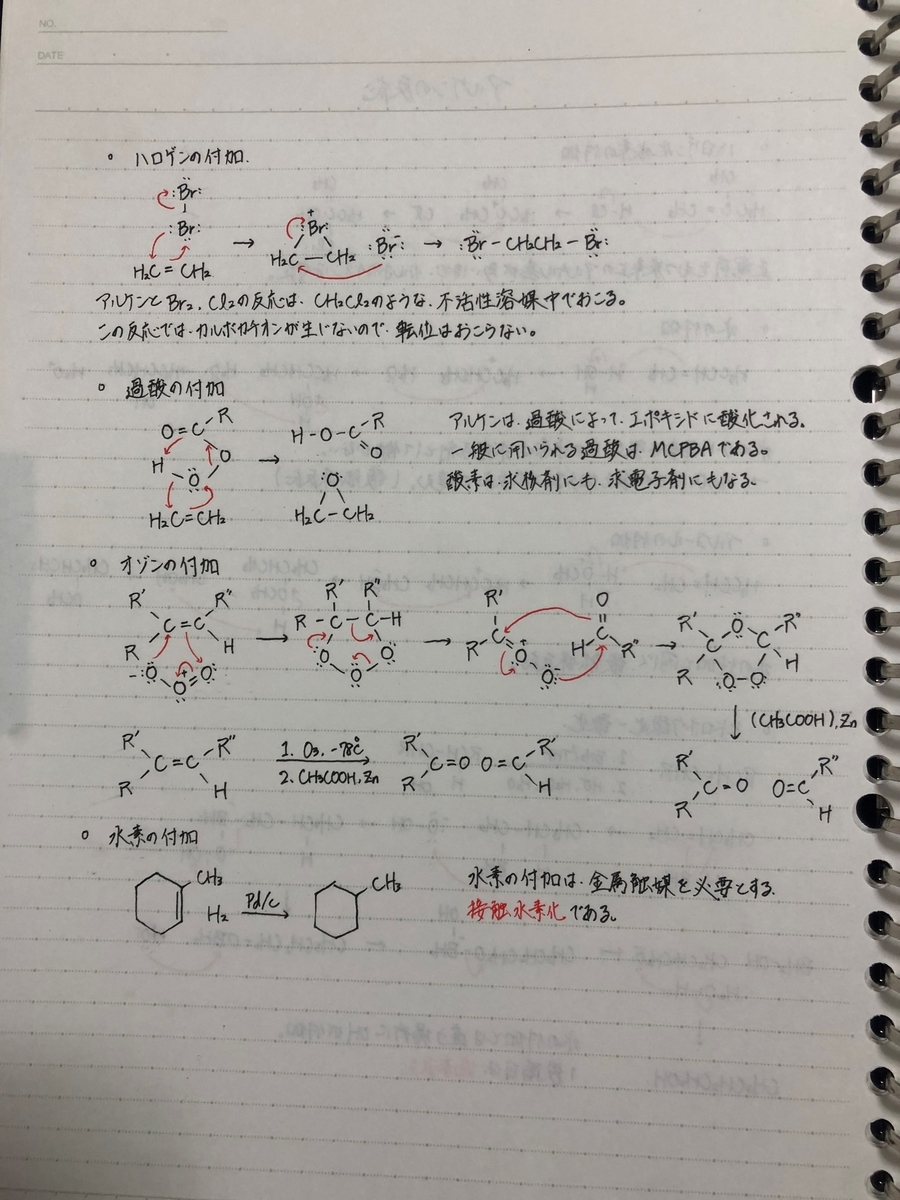 NO.
DATE
ハロゲンの付加.
:Br:
:Br:
H₂C=CH₂ → H₂C-CH₂ :Br:⁻ → :Br-CH₂CH₂-Br:
アルケンとBr₂, Cl₂の反応は、CH₂Cl₂のような、不活性溶媒中でおこる。
この反応では、カルボカチオンが生じないので、転位はおこらない。
過酸の付加
O=C-R
H O
O
H₂C=CH₂
→
H-O-C-R
O
O
H₂C-CH₂
アルケンは、過酸によって、エポキシドに酸化される。
一般に用いられる過酸は、MCPBAである。
酸素は、求核剤にも、求電子剤にもなる。
オゾンの付加
R' R'' R' R'' R' O R' R''
C=C → R-C-C-H → C H-C → C O C
R H R R'' R H
O O O O O O O O O O
(CH₃COOH), Zn
R' R'' 1. O₃, -78℃ R' R'
C=C → C=O O=C
R H 2. CH₃COOH, Zn R H
R' R''
C=O O=C
R H
水素の付加
CH₃ H₂ Pd/C → CH₃
水素の付加は、金属触媒を必要とする.
接触水素化である。